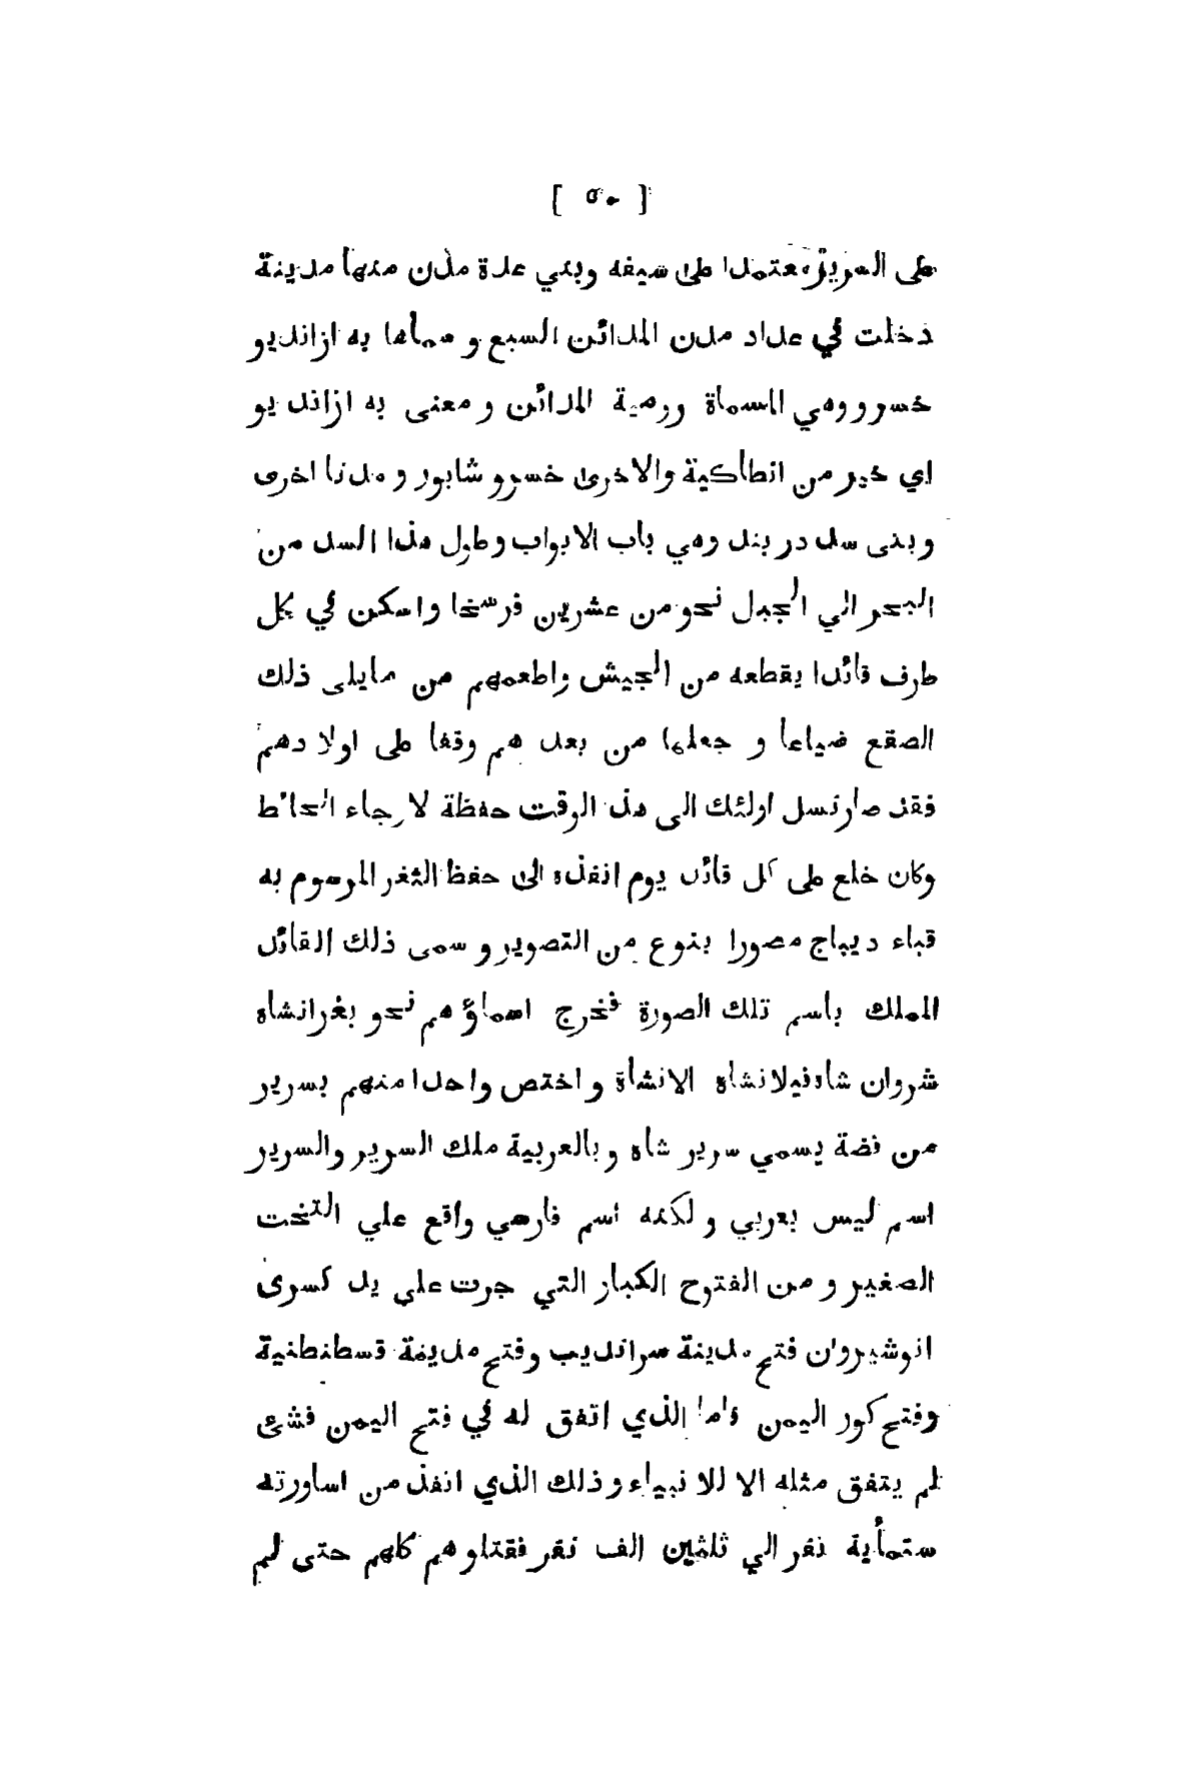 [ ٥٠ ]
على السرير معتمدا على سيفه وبني عدة مدن منها مدينة
دخلت في عداد مدن المدائن السبع و سماها به ازانديو
خسرو وهي المسماة ورمية المدائن و معنى به ازانديو
اي خير من انطاكية والاخرى خسرو شابور و مدنا اخرى
و بنى سد در بند وهي باب الابواب وطول هذا السد من
البحر الي الجبل نحو من عشرين فرسخا واسكن في كل
طرف قائدا بقطعه من الجيش واطعمهم من مايلى ذلك
الصقع ضياعا و جعلها من بعد هم وقفا على اولا دهم
فقد صار نسل اولئك الى هذ الوقت حفظة لارجاء الحائط
وكان خلع على كل قائد يوم انفذه الى حفظ الثغر المرسوم به
قباء ديباج مصورا بنوع من التصوير و سمى ذلك القائد
الملك باسم تلك الصورة فخرج اسماؤ هم نحو بغرانشاه
شروان شاه فيلانشاه الانشاه و اختص واحدا منهم بسرير
من فضة يسمي سرير شاه وبالعربية ملك السرير والسرير
اسم ليس بعربي و لكنه اسم فارسي واقع علي التخت
الصغير و من الفتوح الكبار التي جرت علي يد كسرى
انوشيروان فتح مدينة سرانديب وفتح مدينة قسطنطنية
وفتح كور اليمن واما الذي اتفق له في فتح اليمن فشئ
لم يتفق مثله الا للا نبياء و ذلك الذي انفذ من اساورته
ستمأية نفر الي ثلثين الف نفر فقتلو هم كلهم حتى لم